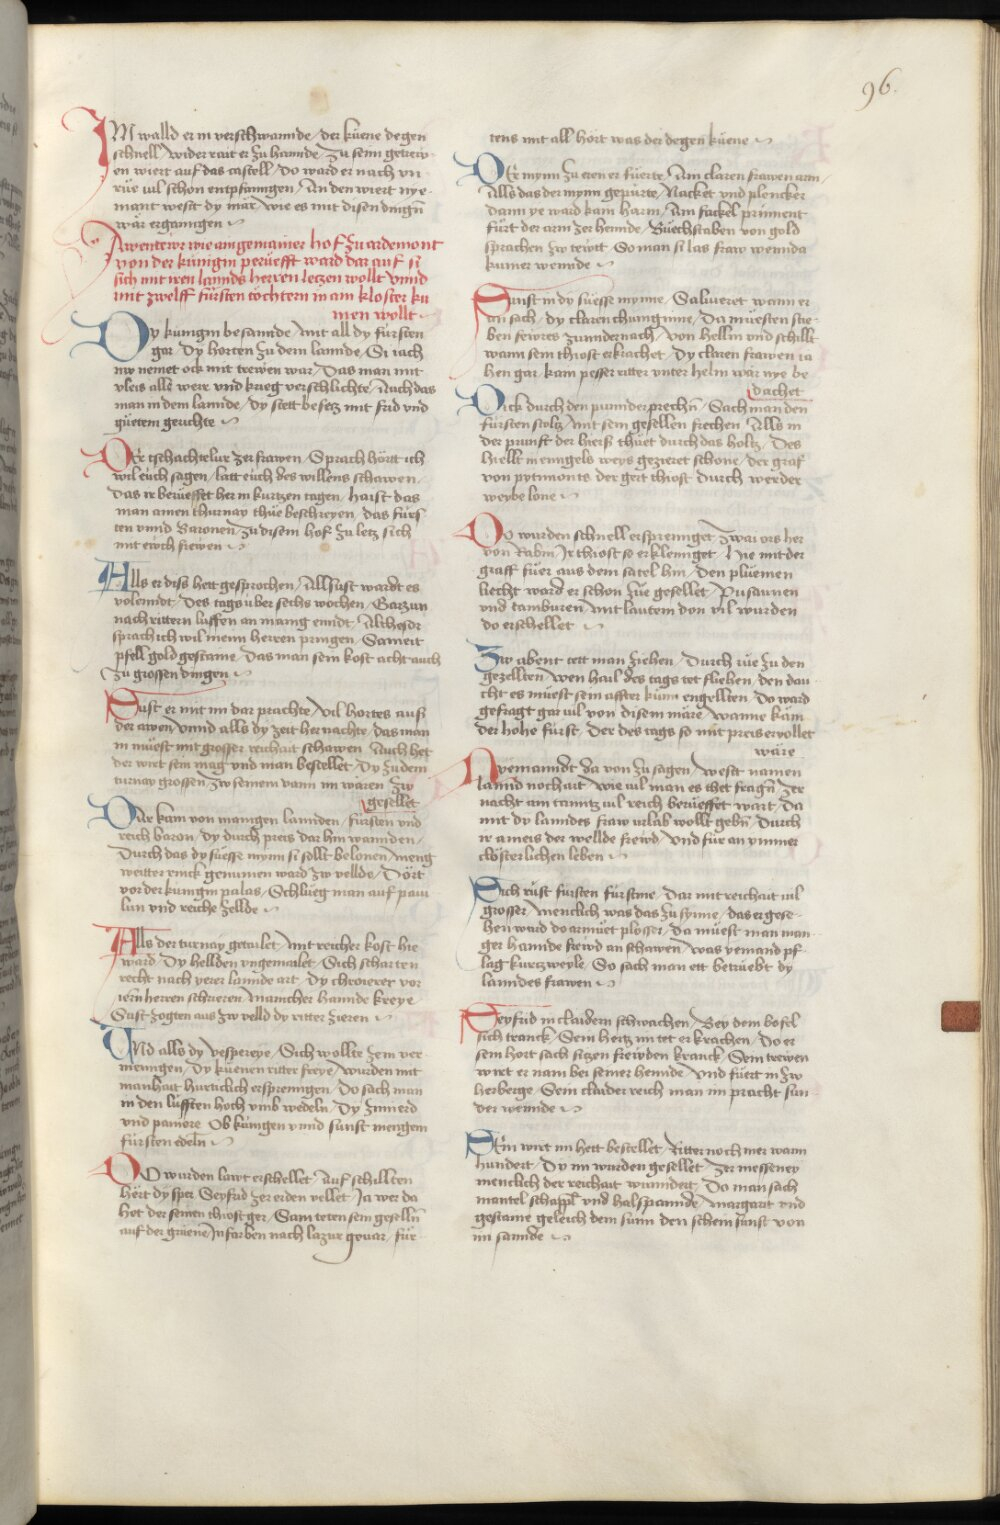 96.
IM walld er in verschwannde / der küene degen
schnell / wider rait er zu hannde / zu seim getrew-
en wiert auf das castell / Do ward er nach vn
rüe vil schon entpfanngen / An den wiert nye-
mant wesst dy mär / wie es mit disen dingñ
wär erganngen
Awentewr wie ain gemainer hof zu ardemont
von der künigin berüefft ward dar auf si
sich mit iren lannds herren letzen wollt vnnd
mit zwelff fürsten töchtern in ain kloster ku
men wollt
Dy künigin besannde / mit all dy fürsten
gar / Dy horten zu dem lannde / Si iach
nw nemet ock mit trewen war / Das man mit
vleis alle werr vnd krieg verschlichte / Auch das
man in dem lannde / dy stett besetz mit frid vnd
güetem gerichte
Der tschachtelur zer frawen / Sprach hört ich
wil euch sagen / latt euch des willens schawen /
Das ir berüeffet her in kurtzen tagen / haisst das
man ainen thurnay thüe beschreyen / das fürs
ten vnnd Baronen / zu disem hof zu letz sich
mit ewch frewen
Alls er diss hett gesprochen / Allsust wardt es
volenndt / Des tags über sechs wochen / Garzun
nach rittern luffen an manig ennd / Altheser
sprach ich wil meim herren pringen / Sameit
pfell gold gestaine / Das man sein kost acht auch
zu grossen dingen
Sust er mit im dar prachte / vil hortes auß
der awen / vnnd alls dy zeit her nachte / das man
in müest mit grosser reichait schawen / Auch het
der wirt sein mag vnd man bestellet / Dy zu dem
turnay grossen / zw seinem vann im wären zw
gesellet
Dar kam von manigen lannden / fürsten vnd
reich baron / dy durch preis dar hin wannden /
Durch das dy süesse mynn si sollt belonen / meng
weitter rinck genumen ward zw vellde / Dört
vor der künigin palas / Schlueg man auf pavi
lun vnd reiche zellde
Alls der turnay getailet / mit reicher kost hie
ward / Dy hellden vngemailet / Sich scharten
recht nach yerer lannde art / Dy chroierer vor
iern herren schrieren / Manicher hannde kreye /
Sust zogten aus zw velld dy ritter zieren
Vnd alls dy vespereye / Sich wollte zem ver
mengen / Dy küenen ritter freye / wurden mit
manhait hurticlich ersprenngen / Do sach man
in den lüfften hoch vmb wedeln / Dy zimierd
vnd paniere / Ob künigen vnnd sunst mengem
fürsten edeln
Do wurden lawt erschellet / Auf schillten
hert dy sper / Seyfrid zer erden vellet / Ja wer da
het der seinen thiost ger / Sam teten sein geselln̄
auf der grüene / In farben nach lazur gevar / für
tens mit all hort was der degen küene
Der mynn zu eren er füerte / Ain claren frawen arm /
Alls das der mynn gepürte / Nacket vnd plencker
dann ye ward kain harm / Ain fackel prinnent
fürt der arm zer hennde / Buechstaben von gold
sprachen zw tewtt / So man si las fraw wennda
kumer wennde
Sunst in dy süesse mynne / Salweret wann er
an sach / dy claren chuniginne / Da müesten stie-
ben fewres zunnder nach / von hellm vnd schillt
wann sein thiost erkrachet / Dy claren frawen ia
hen gar / kain pesser ritter vnter helm wär nye be
dachet
Dick durch den puinder prechñ / Sach man den
fürsten stoltz / mit sein gesellen frechen / Alls in
der prunst der hierß thüet durch das holtz / Des
hiellt in enngels weys gezieret schone / der graf
von pytmonts der gert thiost durch werder
weybe lone
Do wurden schnell ersprennget / zwai ors her
von Rabin / Ir thiost so erklennget / Hie mit der
graff füer aus dem satel hin / Den plüemen
liecht ward er schon züe gesellet / Pusaunen
vnd tamburen / mit lautem don vil wurden
do erschellet
Zw abent tett man ziehen / Durch rüe zu den
gezellten / wen hail des tags tet fliehen / den dau
cht es müest sein affter kum engellten / Do ward
gefragt gar vil von disem märe / wanne käm
der hohe fürst / Der des tags so mit preis ervollet
wäre
Nyemanndt da von zu sagen / wesst namen
lannd noch art / wie vil man es thet fragñ / zer
nacht ain tanntz vil reich berüeffet wart / Da
mit dy lanndes fraw vrlab wollt gebñ / Durch
ir ameis der wellde frewd / vnd für an ymmer
clösterlichen leben
Sich rüst fürsten fürstine / Dar mit reichait vil
grosser / Menclich was das zu synne / das er gese-
hen wurd do armuet plosser / Da müest man man
ger hannde frewd an schawen / was yemand pf-
lag kurtzweyle / So sach man ett betrüebt dy
lanndes frawen
Seyfrid in claidern schwachen / Bey dem bofel
sich tranck / Sein hertz im tet erkrachen / Do er
sein hort sach sitzen frewden kranck / Sein trewen
wirt er nam bei seiner hennde / vnd füert in zw
herberge / Sein claider reich man im pracht sun
der wennde
Sein wirt im hett bestellet / Ritter noch mer wann
hundert / Dy im wurden gesellet / zer messeney
menclich der reichait wunndert / Do man sach
mantel schappl vnd halspannde / margarit vnd
gestaine geleich dem sunn den schein sunst von
im sannde